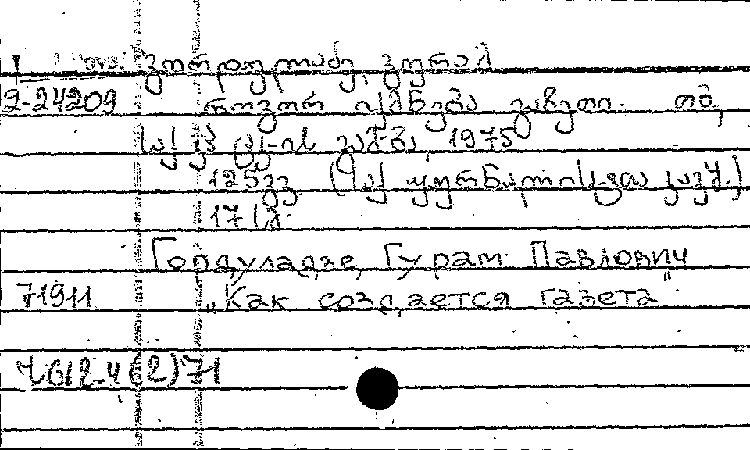 გორდულაძე, გურამ
2-24209 როგორ იქმნება გაზეთი. თბ.,
საქ კპ ცკ-ის გამ-ბა, 1975
125გვ (საქ ჟურნალისტთა კავშ.)
17 სმ.
Гордуладзе, Гурам Павлович
71911 „Как создается газета"
Ч612.4(2)71